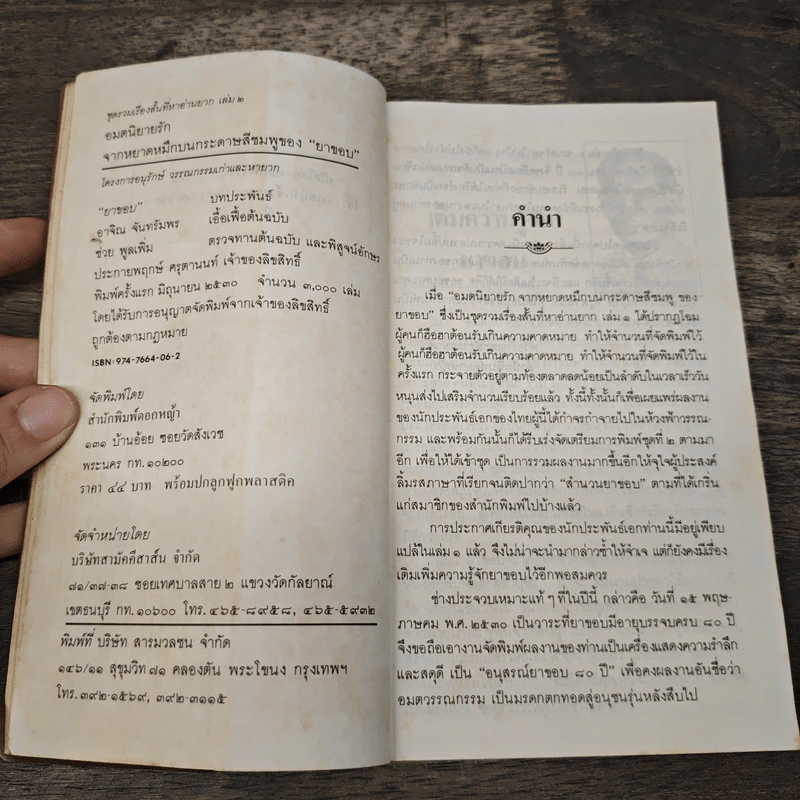 ชุดรวมเรื่องสั้นที่หาอ่านยาก เล่ม ๒
อมตนิยายรัก
จากหยาดหมึกบนกระดาษสีชมพูของ "ยาขอบ"
โครงการอนุรักษ์ วรรณกรรมเก่าและหายาก
"ยาขอบ" บทประพันธ์
อาจิณ จันทรัมพร เอื้อเฟื้อต้นฉบับ
ช่วย พูลเพิ่ม ตรวจทานต้นฉบับ และพิสูจน์อักษร
ประกายพฤกษ์ ศรุตานนท์ เจ้าของลิขสิทธิ์
พิมพ์ครั้งแรก มิถุนายน ๒๕๓๐ จำนวน ๓,๐๐๐ เล่ม
โดยได้รับการอนุญาตจัดพิมพ์จากเจ้าของลิขสิทธิ์
ถูกต้องตามกฎหมาย
ISBN: 974-7664-06-2
จัดพิมพ์โดย
สำนักพิมพ์ดอกหญ้า
๑๓๑ บ้านอ้อย ซอยวัดสังเวช
พระนคร กท. ๑๐๒๐๐
ราคา ๔๔ บาท พร้อมปกลูกฟูกพลาสติค
จัดจำหน่ายโดย
บริษัทสามัคคีสาส์น จำกัด
๗๑/๓๗-๓๘ ซอยเทศบาลสาย ๒ แขวงวัดกัลยาณ์
เขตธนบุรี กท. ๑๐๖๐๐ โทร. ๔๖๕-๘๙๕๘, ๔๖๕-๕๙๓๒
พิมพ์ที่ บริษัท สารมวลชน จำกัด
๑๔๖/๑๑ สุขุมวิท ๗๑ คลองตัน พระโขนง กรุงเทพฯ
โทร. ๓๙๒-๑๕๖๙, ๓๙๒-๓๑๑๕
คำนำ
เมื่อ "อมตนิยายรัก จากหยาดหมึกบนกระดาษสีชมพู ของ
ยาขอบ" ซึ่งเป็นชุดรวมเรื่องสั้นที่หาอ่านยาก เล่ม ๑ ได้ปรากฏโฉม
ผู้คนก็ฮือฮาต้อนรับเกินความคาดหมาย ทำให้จำนวนที่จัดพิมพ์ไว้
ผู้คนก็ฮือฮาต้อนรับเกินความคาดหมาย ทำให้จำนวนที่จัดพิมพ์ไว้ใน
ครั้งแรก กระจายตัวอยู่ตามท้องตลาดลดน้อยเป็นลำดับในเวลาเร็ววัน
หนุนส่งไปเสริมจำนวนเรียบร้อยแล้ว ทั้งนี้ทั้งนั้นก็เพื่อเผยแพร่ผลงาน
ของนักประพันธ์เอกของไทยผู้นี้ได้กำจรกำจายไปในห้วงฟ้าวรรณ-
กรรม และพร้อมกันนั้นก็ได้รีบเร่งจัดเตรียมการพิมพ์ชุดที่ ๒ ตามมา
อีก เพื่อให้ได้เข้าชุด เป็นการรวมผลงานมากขึ้นอีกให้จุใจผู้ประสงค์
ลิ้มรสภาษาที่เรียกจนติดปากว่า "สำนวนยาขอบ" ตามที่ได้เกริ่น
แก่สมาชิกของสำนักพิมพ์ไปบ้างแล้ว
การประกาศเกียรติคุณของนักประพันธ์เอกท่านนี้มีอยู่เพียบ
แปล้ในเล่ม ๑ แล้ว จึงไม่น่าจะนำมากล่าวซ้ำให้จำเจ แต่ก็ยังคงมีเรื่อง
เติมเพิ่มความรู้จักยาขอบไว้อีกพอสมควร
ช่างประจวบเหมาะแท้ ๆ ที่ในปีนี้ กล่าวคือ วันที่ ๑๕ พฤษ-
ภาคม พ.ศ. ๒๕๓๐ เป็นวาระที่ยาขอบมีอายุบรรจบครบ ๘๐ ปี
จึงขอถือเอางานจัดพิมพ์ผลงานของท่านเป็นเครื่องแสดงความรำลึก
และสดุดี เป็น "อนุสรณ์ยาขอบ ๘๐ ปี" เพื่อคงผลงานอันชื่อว่า
อมตวรรณกรรม เป็นมรดกตกทอดสู่อนุชนรุ่นหลังสืบไป